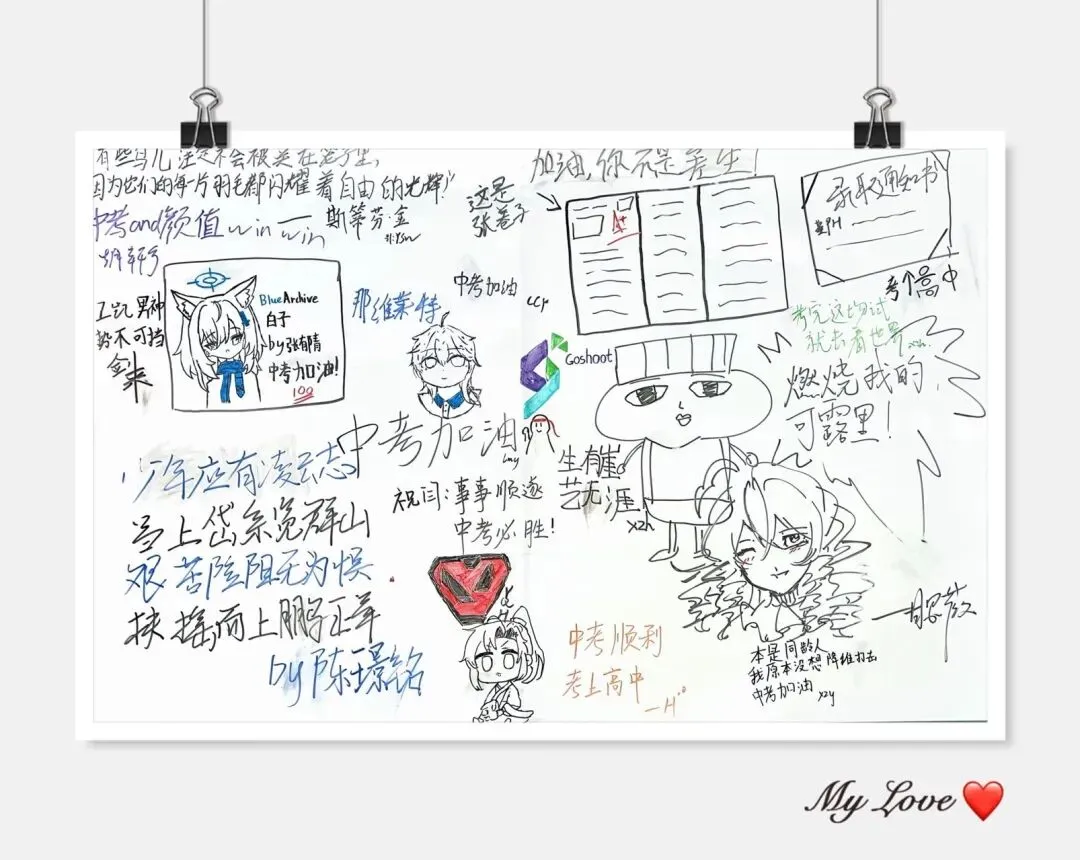 有些鸟儿注定不会被关在笼子里,
因为它们的每一片羽毛都闪耀着自由的光辉!
斯蒂芬·金
中考and颜值 win win
胡轩
这是
张卷子
加油,你不是差生!
A+
录取通知书
考个高中
势不可挡
Blue Archive
白子
by张有晴
中考加油!
100
那维莱特
中考加油
LCY
Goshoot
考完这场试
就去看世界
xzh.
燃烧我的
可露里!
中考加油
lmy
祝闫:事事顺遂
中考必胜!
生有崖
艺无涯
xzh
少年应有凌云志
当上岱宗览群山
艰苦险阻无为惧
扶摇而上鹏正举
by 陈璟铭
中考顺利
考上高中
—H
本是同龄人
我原本没想降维打击
中考加油 xzy
My Love